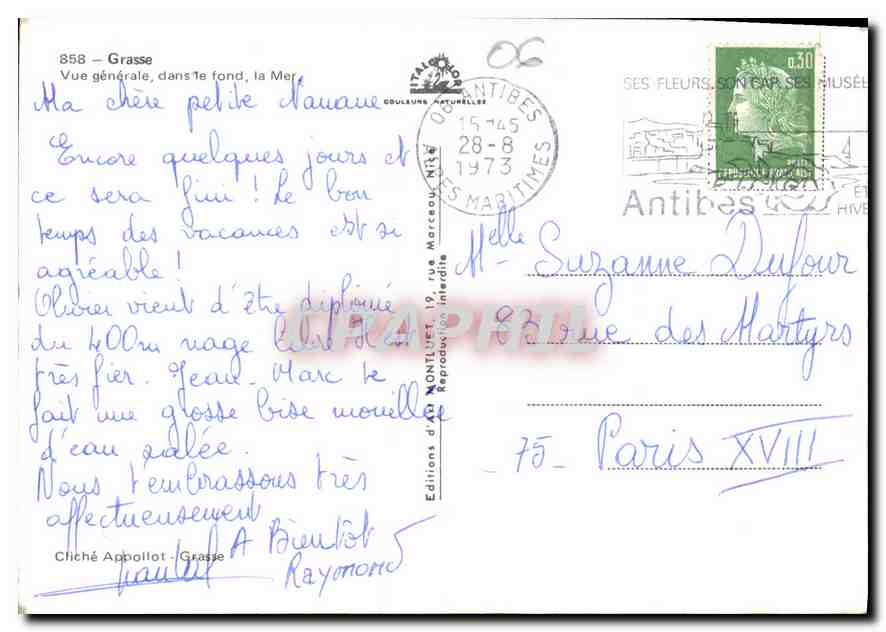 858 – Grasse
Vue générale, dans le fond, la Mer
Ma chère petite Nanane
Encore quelques jours et
ce sera fini ! Le bon
temps des vacances est si
agréable !
Olivier vient d'être diplômé
du 400m nage libre Il est
très fier. Jean-Marc te
fait une grosse bise mouillée
d'eau salée.
Nous t'embrassons très
affectueusement
A Bientôt
Raymond
Cliché Appollot - Grasse
ITALCOLOR
COULEURS NATURELLES
Editions d'Art MONTLUET, 19, rue Marceau, Nice
Reproduction interdite
06
06 ANTIBES
15H45
28-8
1973
ALPES MARITIMES
SES FLEURS, SON CAP, SES MUSÉE
Antibes
ET
HIVE
0,30
REPUBLIQUE FRANCAISE
Melle Suzanne Dufour
83 rue des Martyrs
75 Paris XVIII
CPAPHIL